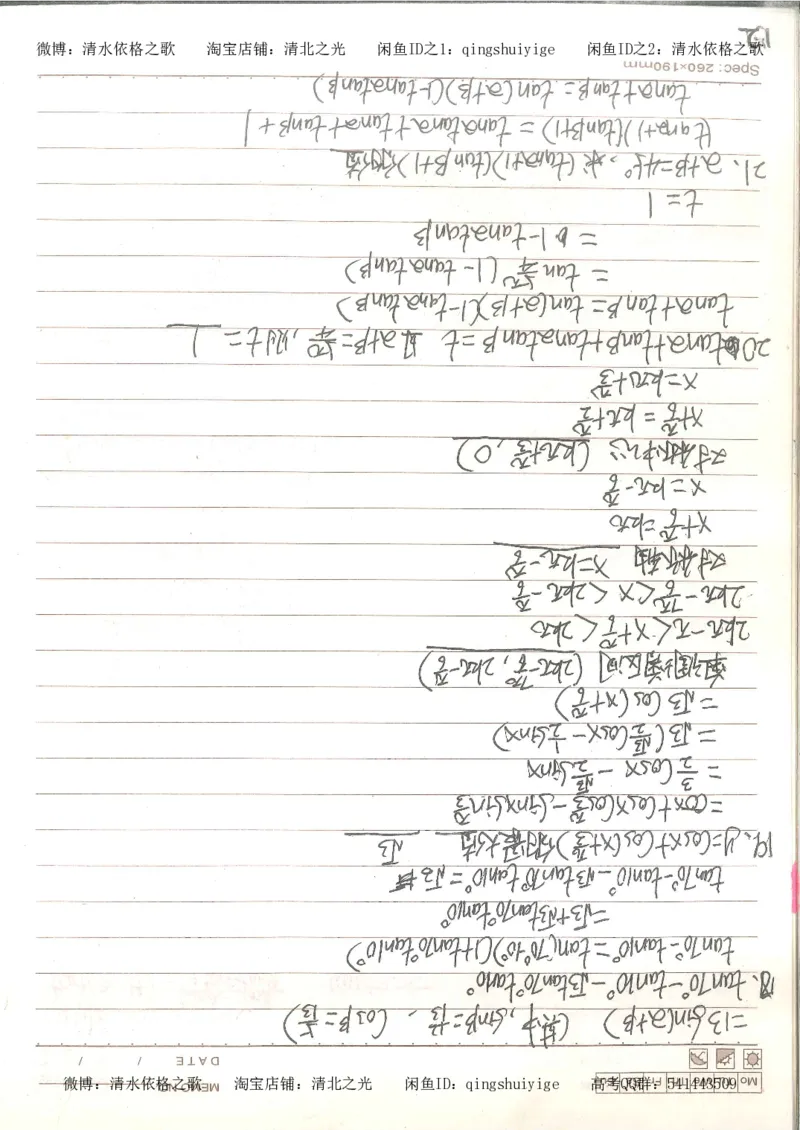 微博：清水依格之歌 淘宝店铺：清北之光 闲鱼ID：qingshuiyige 高考QQ群：541443509
MEMO NO.
DATE / /
=13sin(α+β) (其中, sinβ=5/13, cosβ=
18. tan70°-tan10°-√3tan70°tan10°
tan70°-tan10°=tan(70°-10°)(1+tan70°tan10°)
=√3+√3tan70°tan10°
tan70°-tan10°-√3tan70°tan10°=√3
19. y=cosx+cos(x+π/3)的最大值 √3
=cosx+cosxcosπ/3-sinxsinπ/3
=3/2cosx-√3/2sinx
=√3(√3/2cosx-1/2sinx)
=√3cos(x+π/6)
单调增区间 (2kπ-7π/6, 2kπ-π/6)
2kπ-π<x+π/6<2kπ
2kπ-7π/6<x<2kπ-π/6
对称轴 x=kπ-π/6
x+π/6=kπ
x=kπ-π/6
对称中心 (kπ+π/3, 0)
x+π/6=kπ+π/2
x=kπ+π/3
20 tanα+tanβ+tanαtanβ=t 且α+β=π/4, 则t=1
tanα+tanβ=tan(α+β)(1-tanαtanβ)
=tanπ/4(1-tanαtanβ)
=1-tanαtanβ
t=1
21. α+β=45°, 求(tanα+1)(tanβ+1)的值
(tanα+1)(tanβ+1)=tanαtanα+tanα+tanβ+1
tanα+tanβ=tan(α+β)(1-tanαtanβ)
Spec: 260×190mm
微博：清水依格之歌 淘宝店铺：清北之光 闲鱼ID之1：qingshuiyige 闲鱼ID之2：清水依格之歌
12